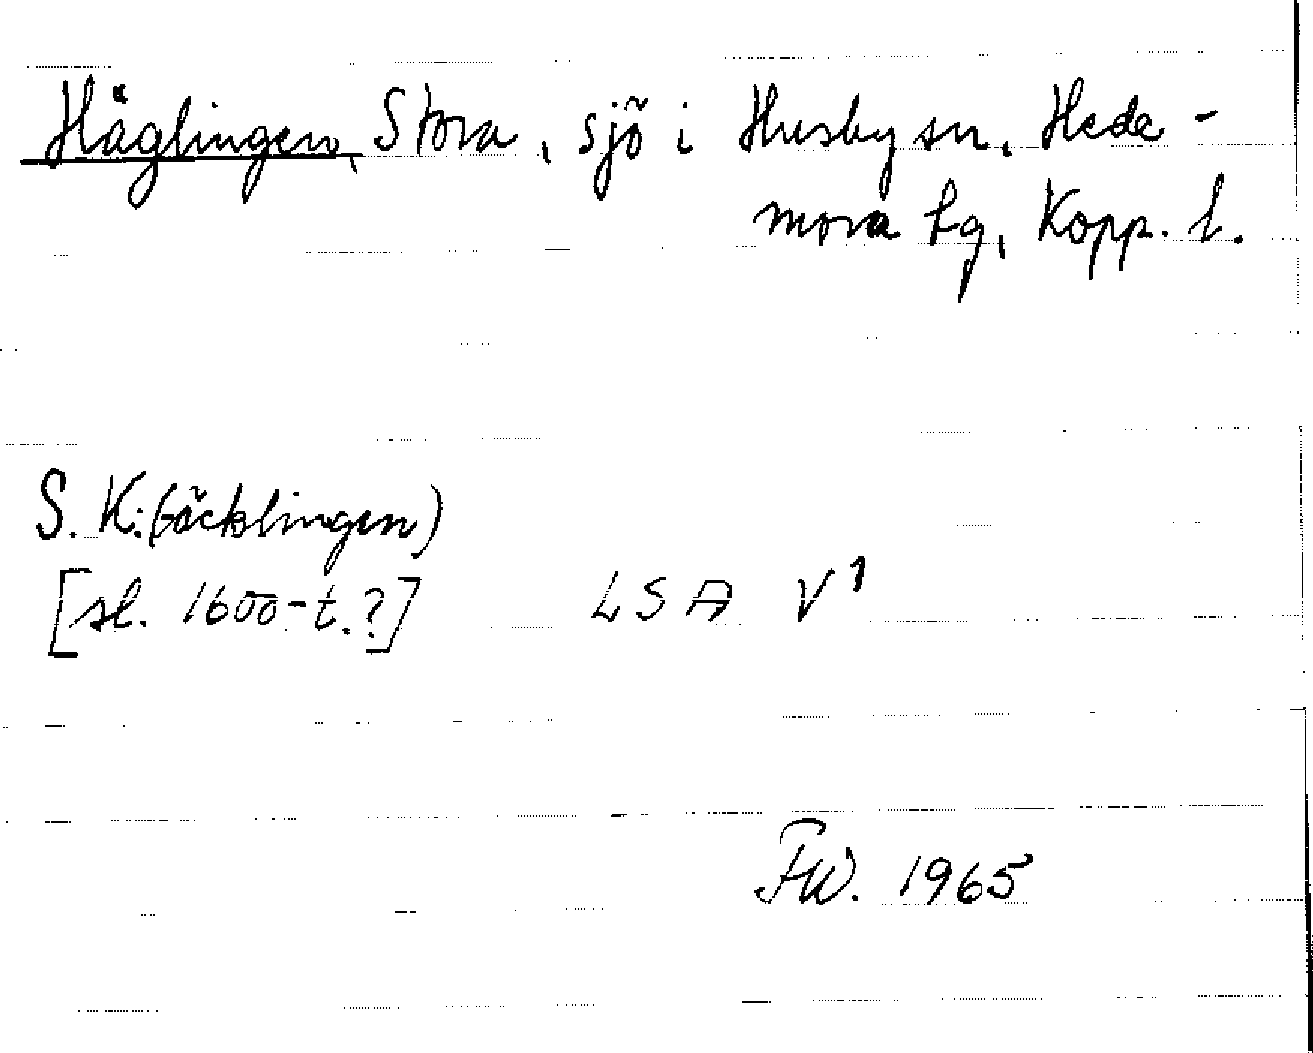 Häglingen, Stora, sjö i Husby sn, Hede-
mora tg, Kopp. l.
S. K:(äcklingen)
[sl. 1600-t.?] LSA V1
FW. 1965